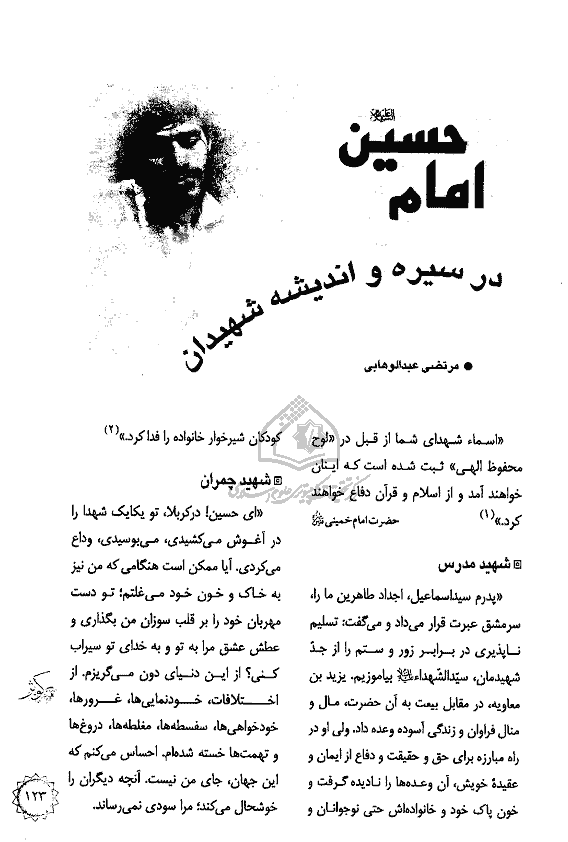 امام
حسین
در سیره و اندیشه شهیدان
● مرتضی عبدالوهابی
«اسماء شهدای شما از قبل در «لوح
محفوظ الهی» ثبت شده است که اینان
خواهند آمد و از اسلام و قرآن دفاع خواهند
کرد.»(۱) حضرت امام خمینی
شهید مدرس
«پدرم سیداسماعیل، اجداد طاهرین ما را،
سرمشق عبرت قرار می‌داد و می‌گفت: تسلیم
ناپذیری در برابر زور و ستم را از جدّ
شهیدمان، سیّدالشّهداء بیاموزیم. یزید بن
معاویه، در مقابل بیعت به آن حضرت، مال و
منال فراوان و زندگی آسوده وعده داد. ولی او در
راه مبارزه برای حق و حقیقت و دفاع از ایمان و
عقیدهٔ خویش، آن وعده‌ها را نادیده گرفت و
خون پاک خود و خانواده‌اش حتی نوجوانان و
کودکان شیرخوار خانواده را فدا کرد.»(۲)
شهید چمران
«ای حسین! درکربلا، تو یکایک شهدا را
در آغوش می‌کشیدی، می‌بوسیدی، وداع
می‌کردی. آیا ممکن است هنگامی که من نیز
به خاک و خون خود می‌غلتم؛ تو دست
مهربان خود را بر قلب سوزان من بگذاری و
عطش عشق مرا به تو و به خدای تو سیراب
کنی؟ از این دنیای دون می‌گریزم. از
اختلافات، خودنمایی‌ها، غرورها،
خودخواهی‌ها، سفسطه‌ها، مغلطه‌ها، دروغ‌ها
و تهمت‌ها خسته شده‌ام. احساس می‌کنم که
این جهان، جای من نیست. آنچه دیگران را
خوشحال می‌کند؛ مرا سودی نمی‌رساند.
۱۲۳